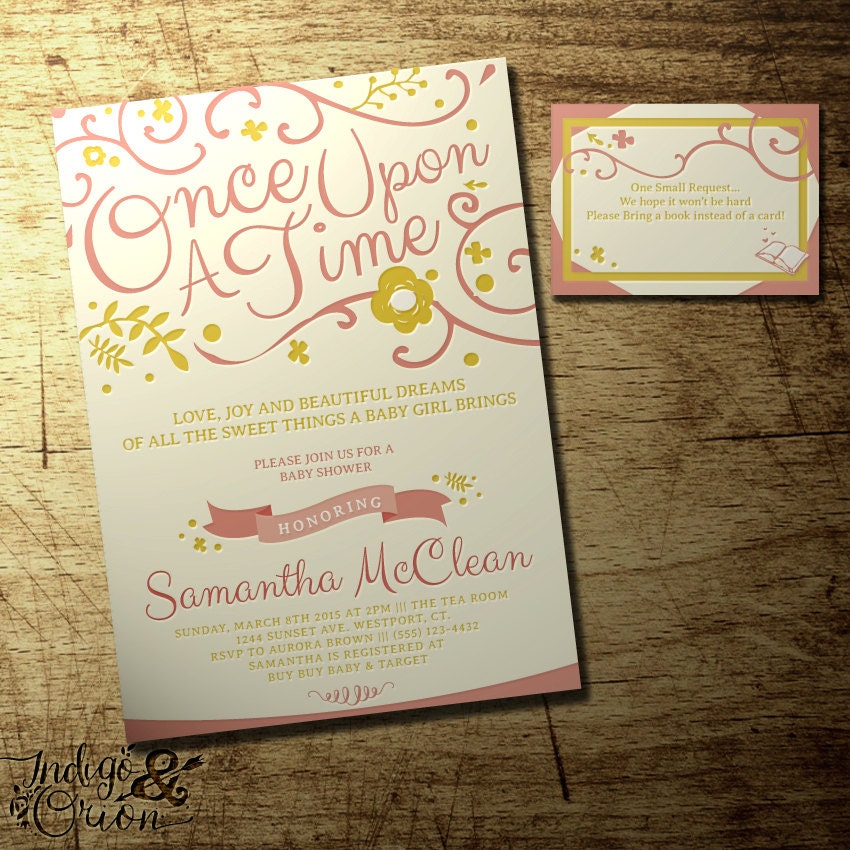 Once Upon
A Time
LOVE, JOY AND BEAUTIFUL DREAMS
OF ALL THE SWEET THINGS A BABY GIRL BRINGS
PLEASE JOIN US FOR A
BABY SHOWER
HONORING
Samantha McClean
SUNDAY, MARCH 8TH 2015 AT 2PM ||| THE TEA ROOM
1244 SUNSET AVE. WESTPORT, CT.
RSVP TO AURORA BROWN ||| (555) 123-4432
SAMANTHA IS REGISTERED AT
BUY BUY BABY & TARGET
One Small Request...
We hope it won't be hard
Please Bring a book instead of a card!
Indigo &
Orion